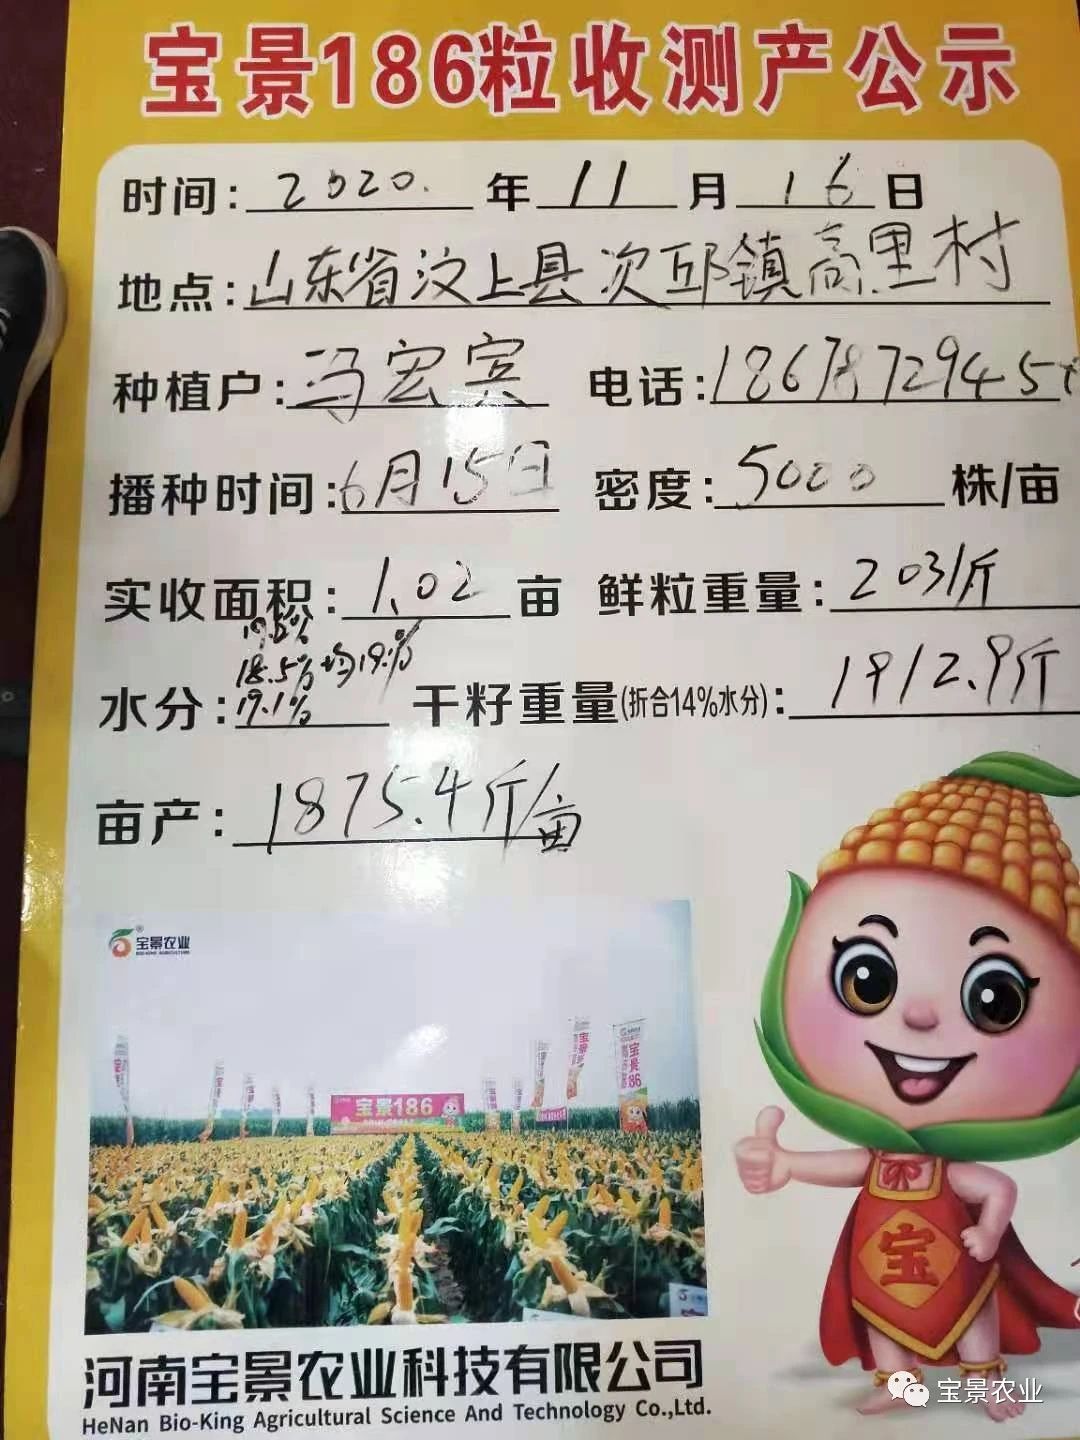 宝景186粒收测产公示
时间: 2020. 年 11 月 16 日
地点: 山东省汶上县次邱镇高里村
种植户: 冯宏宾 电话: 1867872945
播种时间: 6月15日 密度: 5000 株/亩
实收面积: 1.02 亩 鲜粒重量: 2031斤
18.5% 均19.%
水分: 19.1% 干籽重量(折合14%水分): 1912.9斤
亩产: 1875.4斤/亩
宝景农业
BIO-KING AGRICULTURE
宝景186
宝景186
宝
河南宝景农业科技有限公司
HeNan Bio-King Agricultural Science And Technology Co.,Ltd.
宝景农业